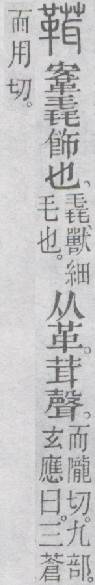 䩸鞌毳飾也、毳獸細毛也。从革。茸聲。而隴切。九部。玄應曰。三蒼
而用切。